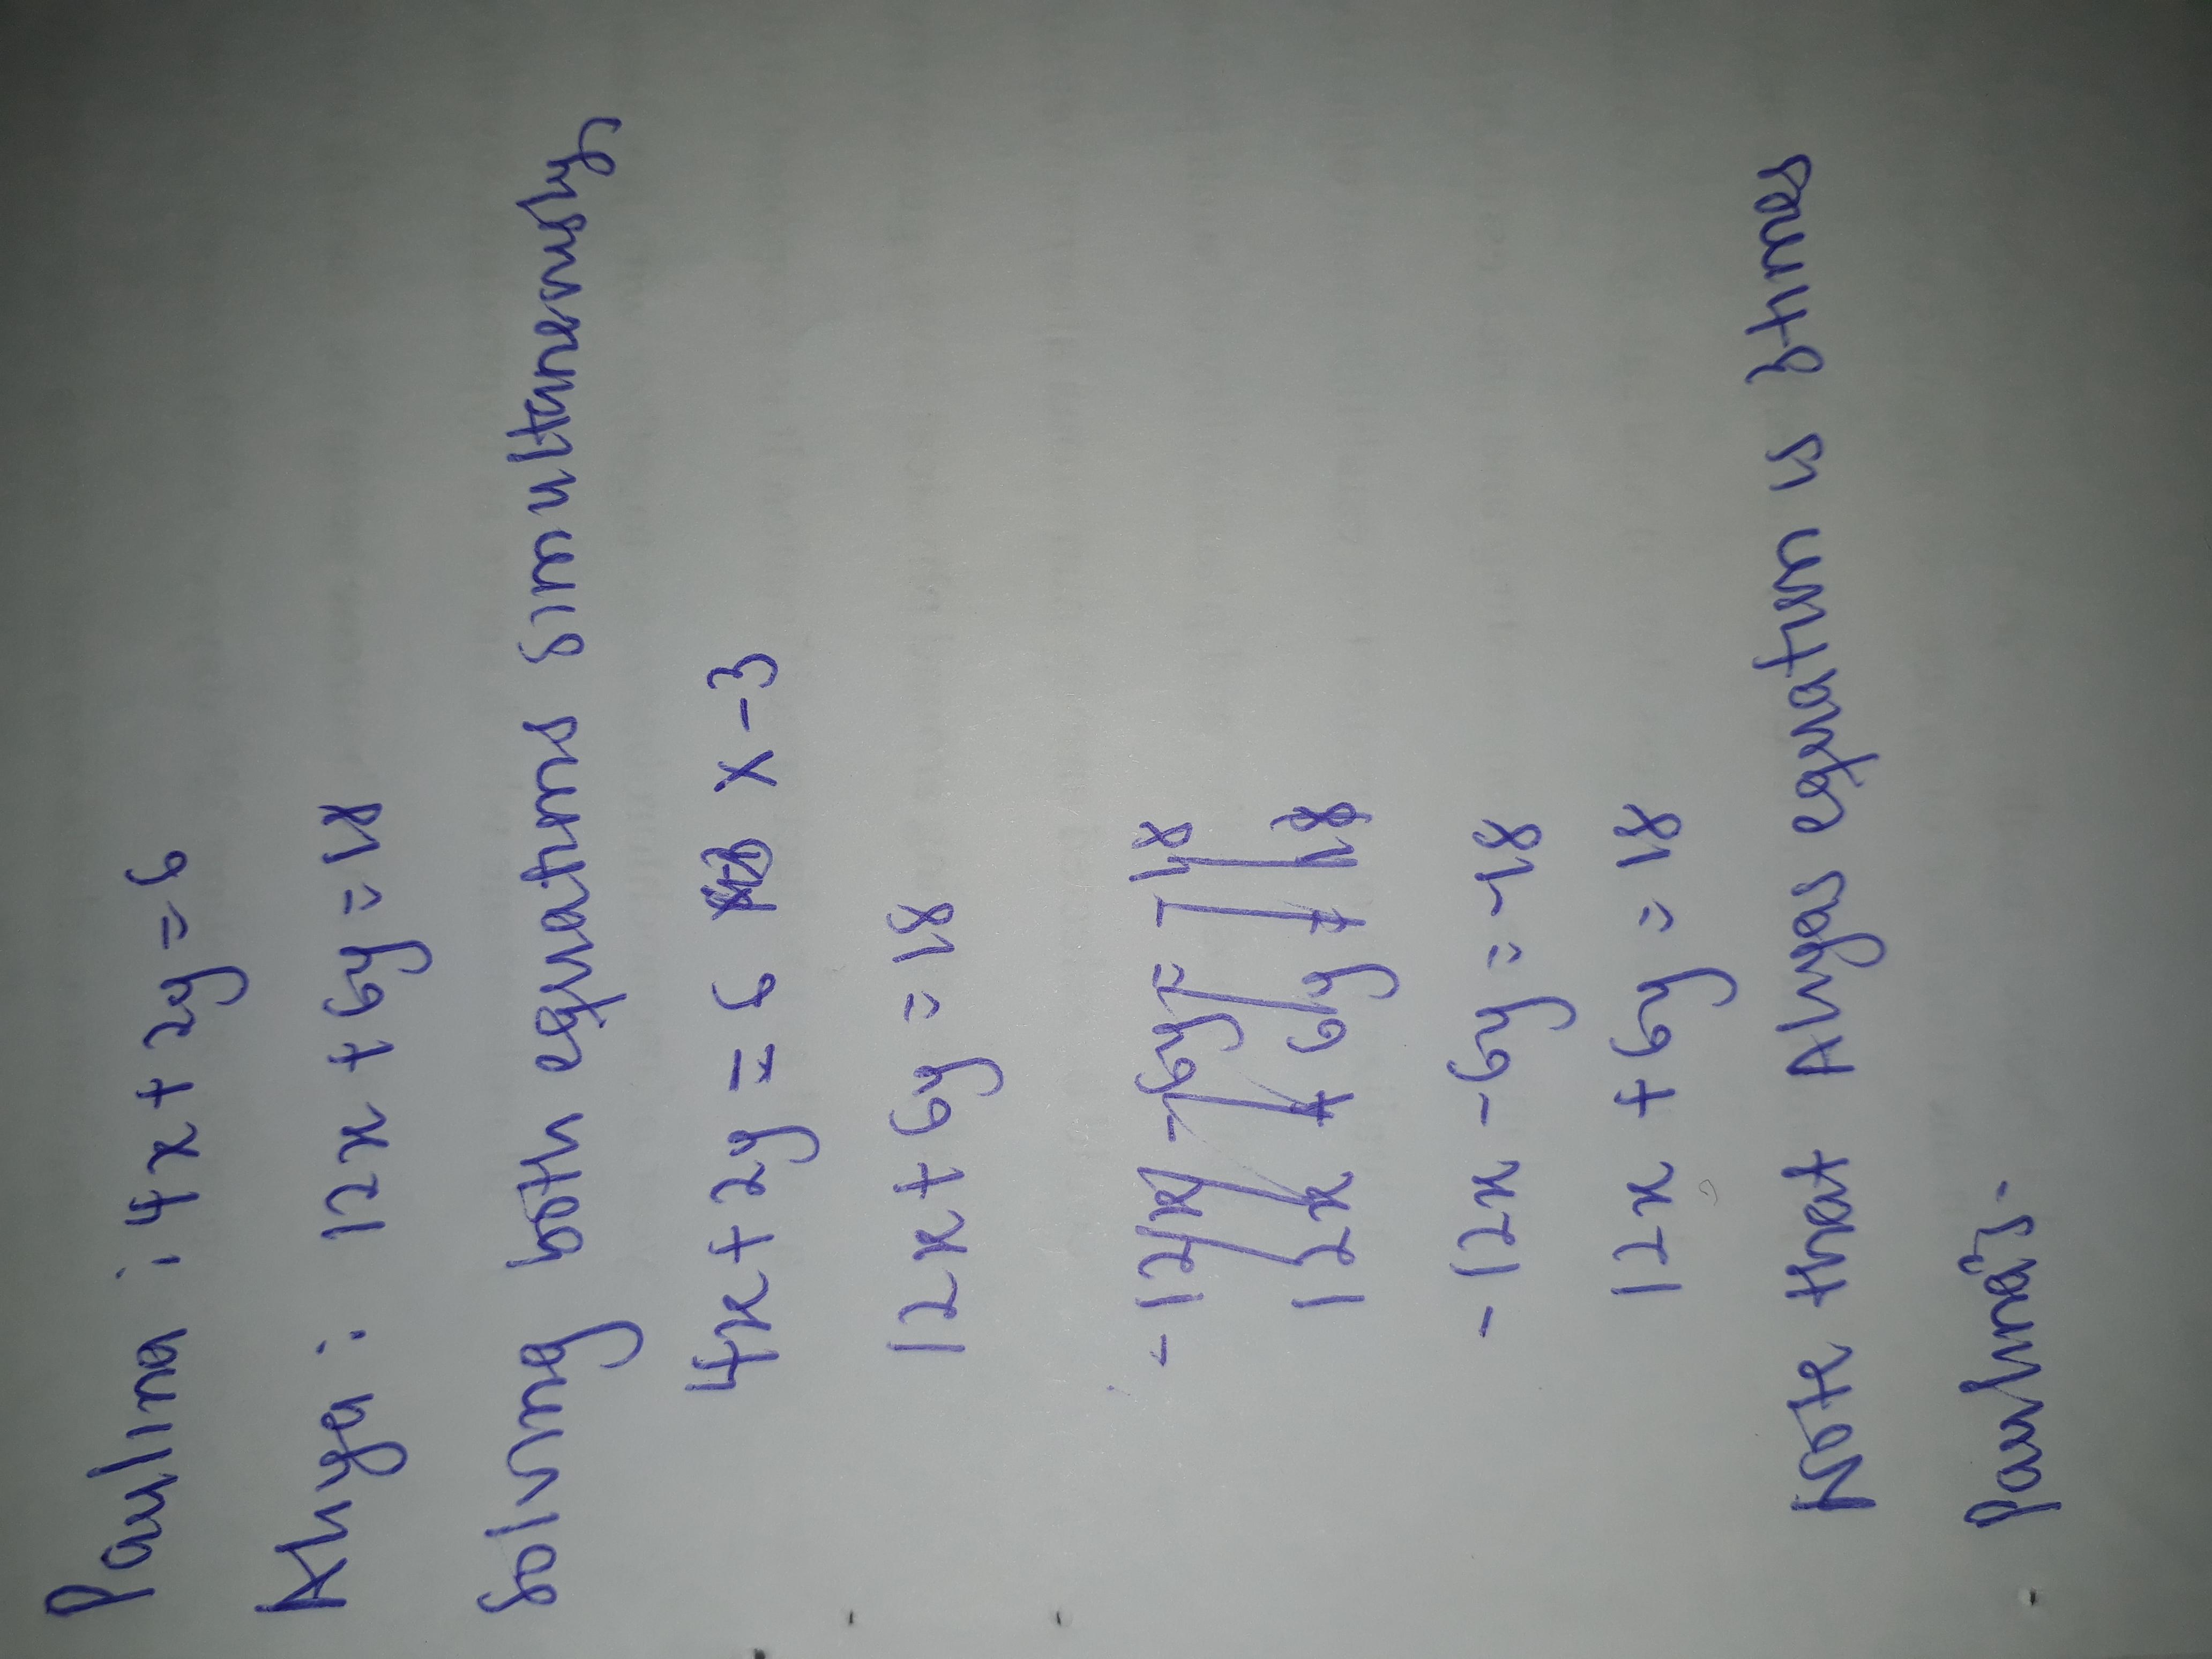 Paulina : 4x + 2y = 6
Aliya : 12x + 6y = 18
Solving both equations simultaneously
4x + 2y = 6 x -3
12x + 6y = 18
-12x - 6y = -18
12x + 6y = 18
-12x - 6y = -18
12x + 6y = 18
Note that Aliyas equation is 3 times
Paulina's.